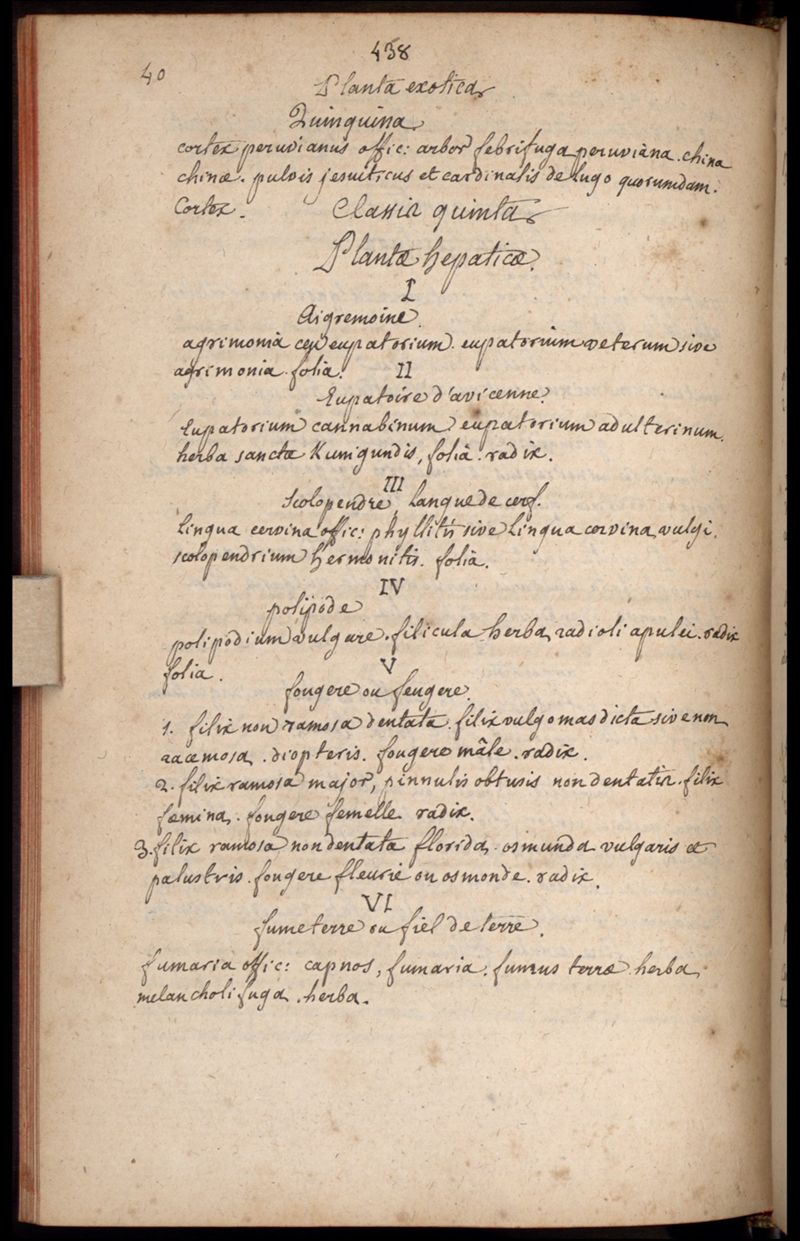 438
40
Planta exotica
Quinquina
cortex peruvianus offic: arbor febrifuga peruviana. china
chinæ. pulvis jesuiticus et cardinalis de Lugo quorumdam.
Cortex.
Classis quinta
Plantæ hepaticæ.
I
Aigremoine.
agrimonia seu eupatorium. eupatorium veterum sive
agrimonia. folia.
II
Eupatoire d'avicenne.
Eupatorium cannabinum eupatorium adulterinum.
herba sanctæ Kunigundis, folia. radix.
III
Scolopendre, Langue de cerf.
Lingua cervina offic: phyllitis sive Lingua cervina vulgi.
scolopendrium hermonitis. folia.
IV
polipode
polipodium vulgare. filicula herba radioli apulei. radix
folia.
V
fougere ou feugere.
1. filix non ramosa dentata. filix vulgo mas dicta sive non
racemosa. diopteris. fougere mâle. radix.
2. filix ramosa major, pinnulis obtusis non dentatis. filix
fæmina. fougere femelle radix.
3. filix ramosa non dentata florida. osmunda vulgaris et
palustris. fougere fleurie ou osmonde. radix.
VI
fumeterre ou fiel de terre.
fumaria offic: capnos, fumaria. fumus terræ herba
melancholifuga. herba.